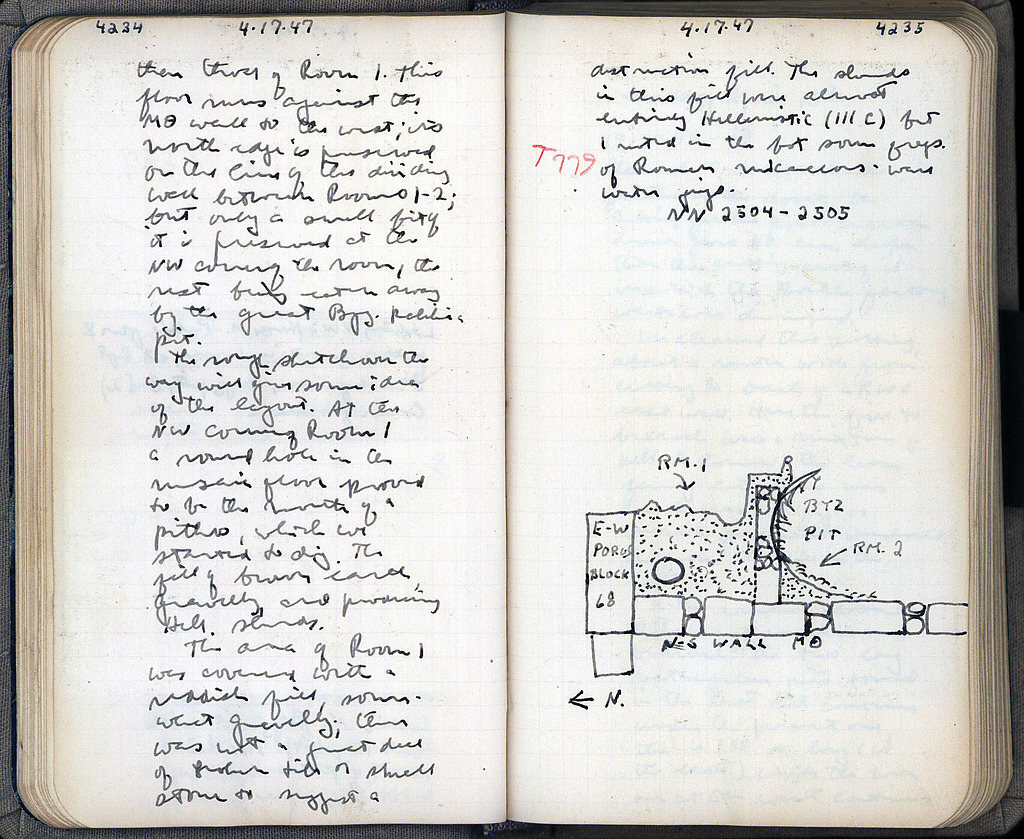 4234
4.17.47
then that of Room 1. This
floor runs against the
MΘ wall to the west; its
north edge is preserved
on the line of the dividing
wall between Rooms 1-2;
but only a small bit of
it is preserved at the
NW corner of the room, the
rest being eaten away
by the great Byz.
pit.
The rough sketch over the
way will give some idea
of the layout. At the
NW corner of Room 1
a round hole in the
mosaic floor proved
to be the mouth of a
pithos, which we
started to dig. The
fill of brown earth,
gravelly, and producing
Hell. sherds.
The area of Room 1
was covered with a
reddish fill, some-
what gravelly; there
was not a great deal
of broken tile or small
stone to suggest a
4.17.47
4235
destruction fill. The sherds
in this fill were almost
entirely Hellenistic (III C) but
I noted in the lot some frags.
of Roman micaceous ware
water jugs.
T779
NN 2304-2305
RM. 1
BYZ
PIT
RM. 2
E-W
POROS
BLOCK
68
N-S WALL MΘ
← N.